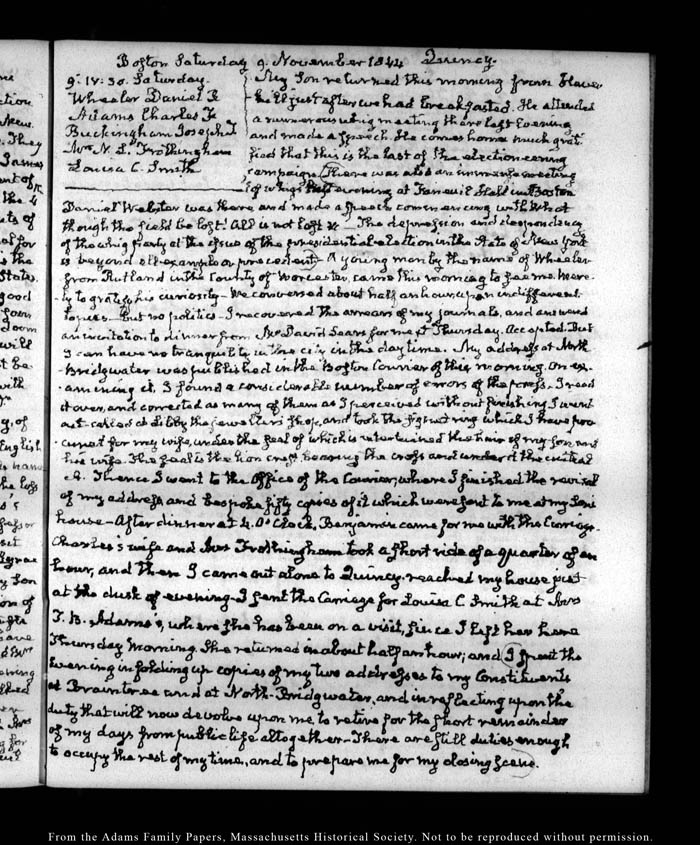 Boston Saturday 9. November 1844 Quincy.
9. IV:30. Saturday.
Wheeler Daniel F
Adams Charles F
Buckingham Joseph T
Mrs N. L. Frothingham
Louisa C. Smith
My Son returned this morning from Haver-
hill just after we had breakfasted. He attended
a numerous whig meeting there last Evening
and made a Speech. He comes home much grat-
ified that this is the last of the electioneering
campaign. There was also an immense meeting
of whigs last evening at Faneuil Hall in Boston
Daniel Webster was there and made a Speech commencing with What
though the field be lost? All is not lost &c The depression and despondency
of the whig party at the issue of the presidential election in the State of New York
is beyond all example or precedent. A young man by the name of Wheeler
from Rutland in the County of Worcester, came this morning to see me. Mere-
ly to gratify his curiosity. We conversed about half an hour, upon indifferent
topics. but no politics. I recovered the arrears of my journals, and answered
an invitation to dinner from Mr David Sears for next Thursday. Accepted. But
I can have no tranquility in the city in the day time. My address at North-
Bridgwater was published in the Boston Courier of this morning. On ex-
amining it I found a considerable number of errors of the press. I read
it over, and corrected as many of them as I perceived without finishing I went
out. called at the jewellers shop, and took the signet ring which I have pro-
cured for my wife, under the seal of which is intertwined the hair of my son and
his wife. The seal is the lion crest bearing the cross and under it the initial
A. Thence I went to the Office of the Courier, where I finished the revisal
of my address, and bespoke fifty copies of it which were sent to me at my Son's
house. After dinner at 4. O'Clock, Benjamin came for me with the Carriage.
Charles's wife and Mrs Frothingham took a short ride of a quarter of an
hour, and then I came out alone to Quincy. reached my house just
at the dusk of evening. I sent the Carriage for Louisa C. Smith at Mrs
T. B. Adams's, where she has been on a visit, since I left her here
Thursday Morning. She returned in about half an hour; and I spent the
Evening in folding up copies of my two addresses to my Constituents
at Braintree and at North-Bridgwater, and in reflecting upon the
duty that will now devolve upon me, to retire for the short remainder
of my days from public life altogether. There are still duties enough
to occupy the rest of my time, and to prepare me for my closing scene.
From the Adams Family Papers, Massachusetts Historical Society. Not to be reproduced without permission.